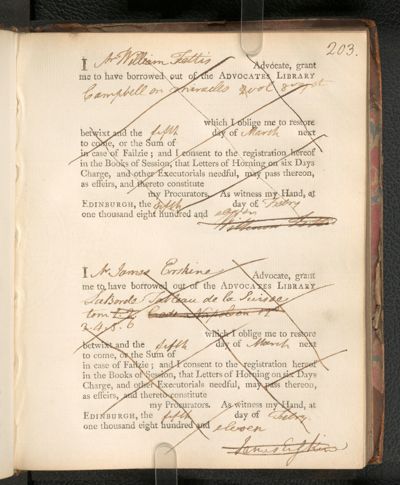 203.
I Mr William Fettis Advocate, grant
me to have borrowed out of the ADVOCATES LIBRARY
Campbell on miracles 2 vol
which I oblige me to restore
betwixt and the fifth day of March next
to come, or the Sum of
in case of Failzie; and I consent to the registration hereof
in the Books of Session, that Letters of Horning on six Days
Charge, and other Executorials needful, may pass thereon,
as effeirs, and thereto constitute
my Procurators. As witness my Hand, at
EDINBURGH, the fifth day of Febry
one thousand eight hundred and eleven
William Fettis
I Mr James Erskine Advocate, grant
me to have borrowed out of the ADVOCATES LIBRARY
LaBorde Tableau de la Suisse
tom
3. 4. 5. 6
which I oblige me to restore
betwixt and the fifth day of March next
to come, or the Sum of
in case of Failzie; and I consent to the registration hereof
in the Books of Session, that Letters of Horning on six Days
Charge, and other Executorials needful, may pass thereon,
as effeirs, and thereto constitute
my Procurators. As witness my Hand, at
EDINBURGH, the fifth day of Febry
one thousand eight hundred and eleven
James Erskine